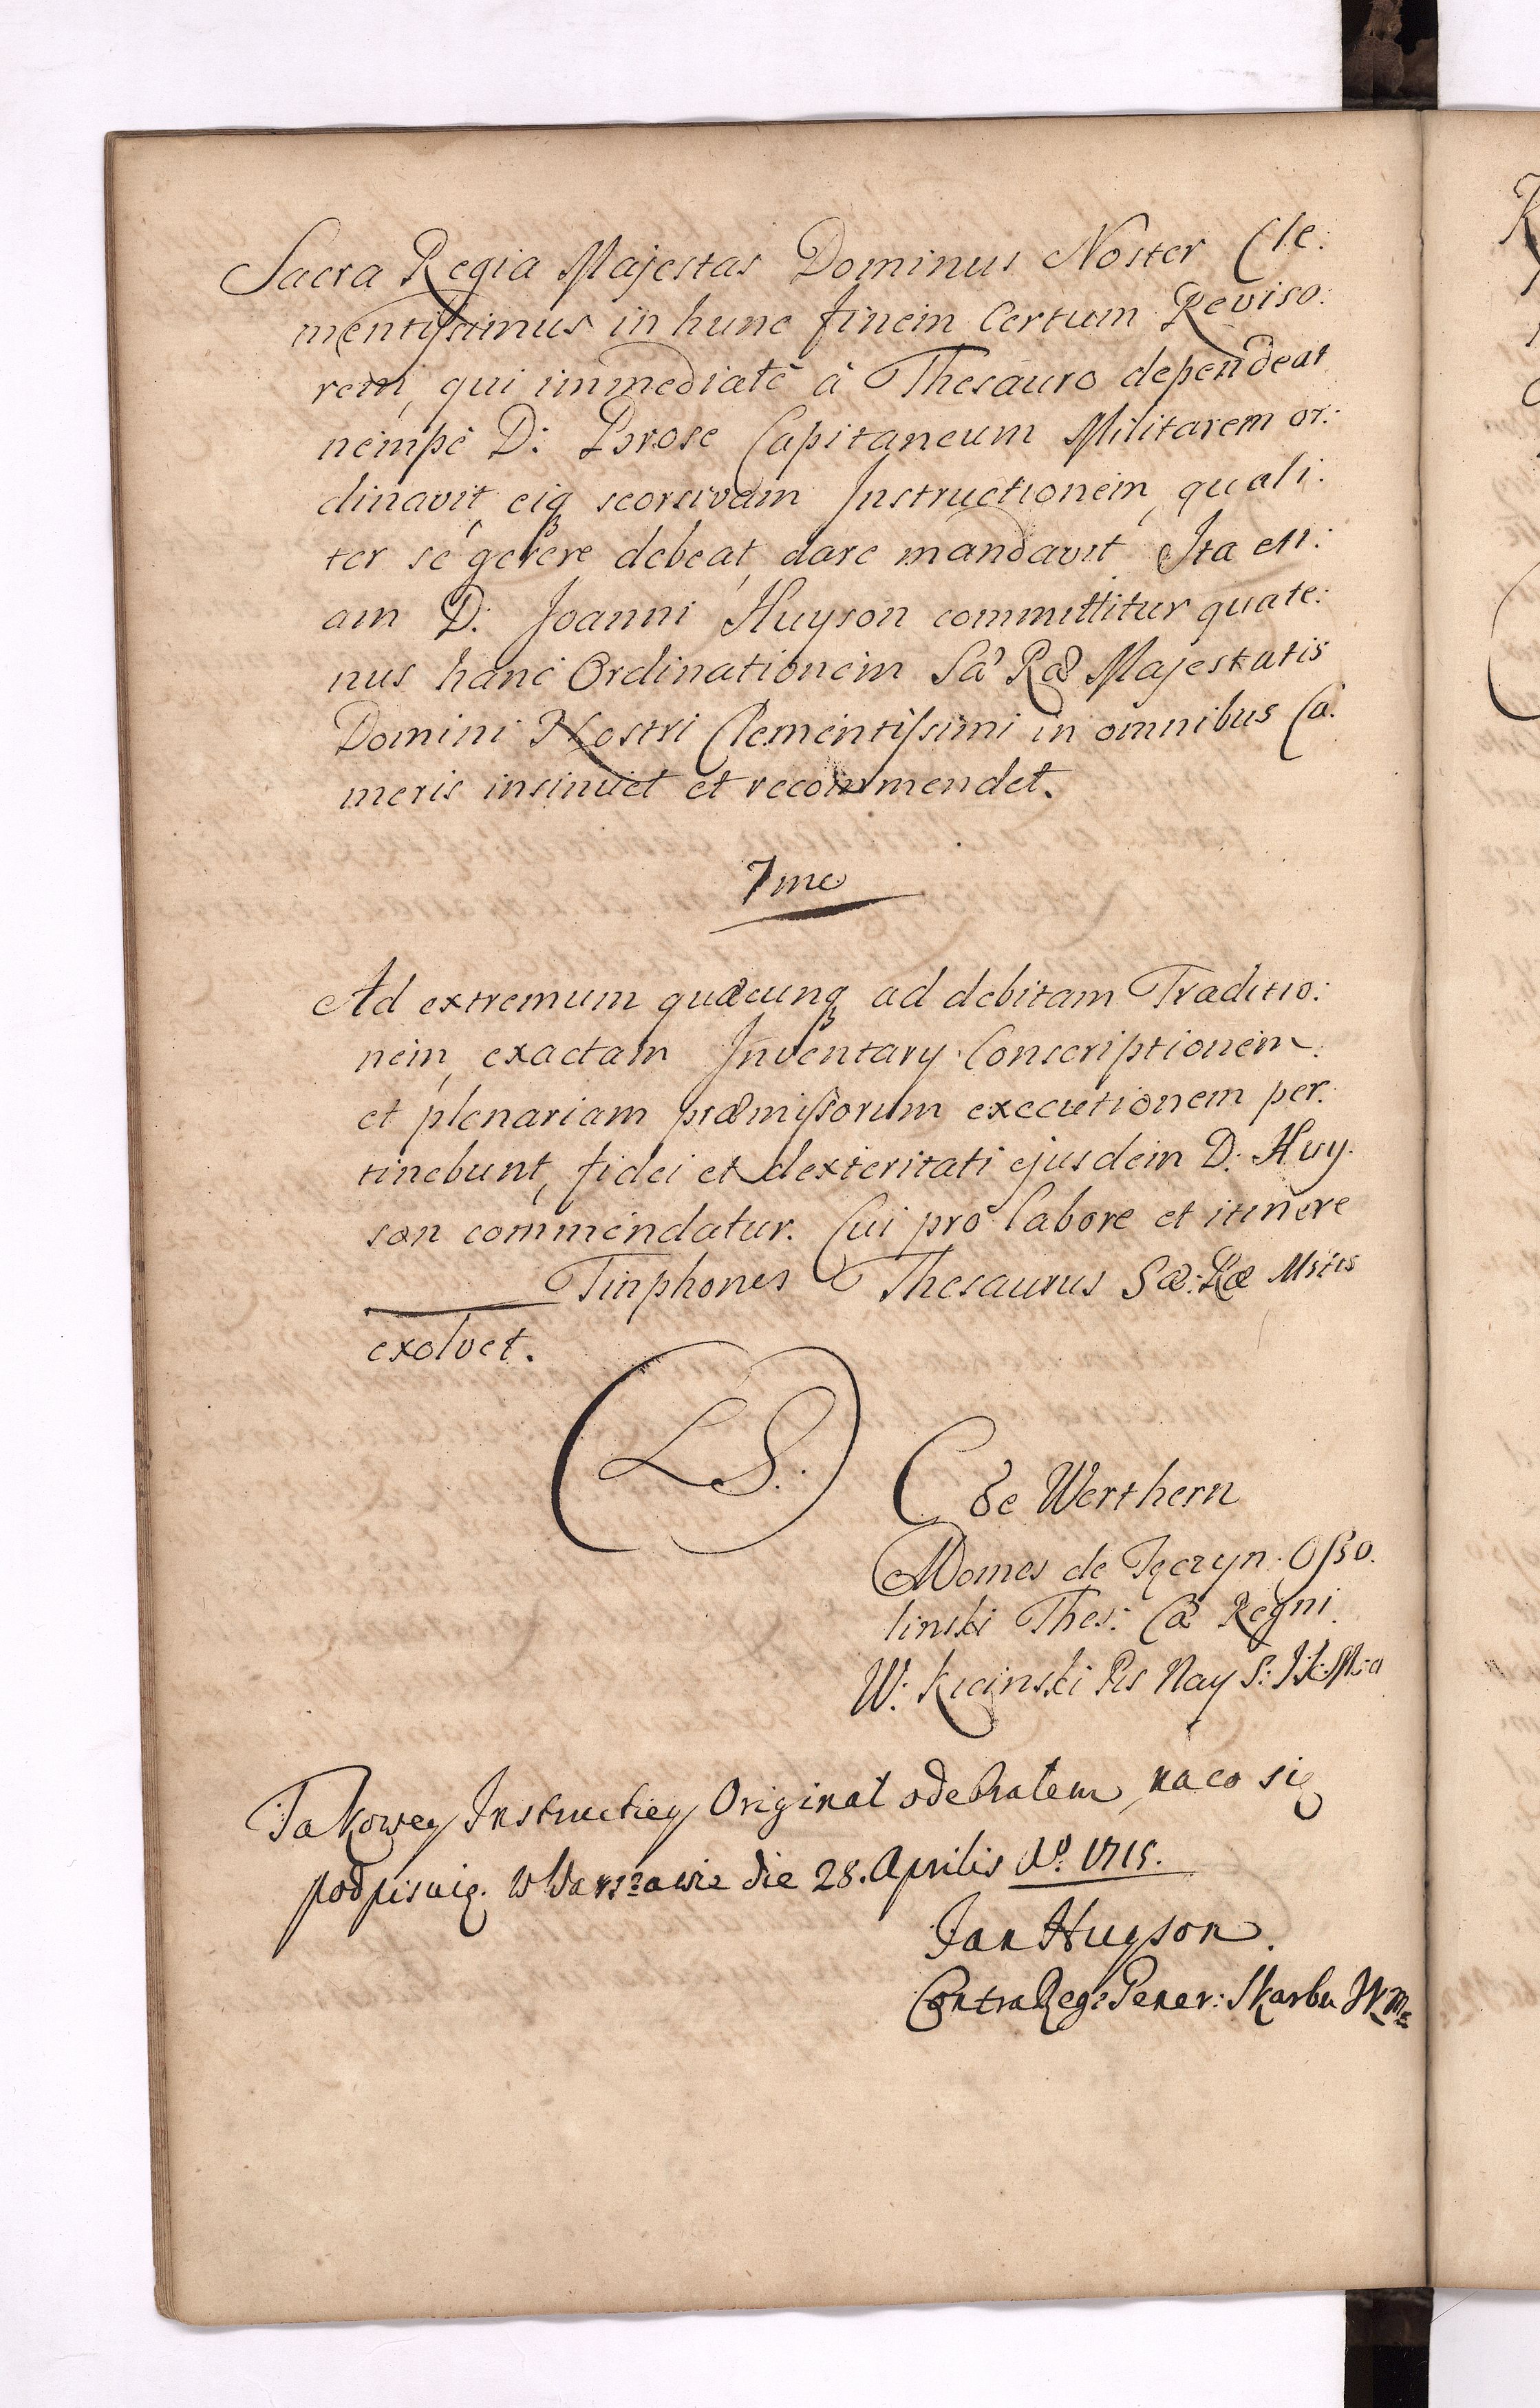 Sacra Regia Majestas Dominus Noster Cle:
mentissimus in hunc finem Certum Reviso:
rem, qui immediatè à Thesauro dependeat
nempè D: Brose Capitaneum Militarem or:
dinavit, eiq seorsivam Instructionem, quali:
ter sè gerere debeat, dare mandavit, Ita eti:
am D: Joanni Huyson committitur quate:
nus hanc Ordinationem Sæ Ræ Majestatis
Domini Nostri Clementissimi in omnibus Ca:
meris insinuet et recommendet.
7me
Ad extremum quæcunq ad debitam Traditio:
nem, exactam Inventary Conscriptionem
et plenariam præmissorum executionem per:
tinebunt, fidei et dexteritati ejusdem D: Huy:
son commendatur. Cui prò labore et itinere
Tinphones Thesaurus Sæ: Ræ Mttis
exolvet.
LS.
C de Werthern
Comes de Tęczyn Osso:
linski Thes: Cæ Regni
W: Kicinski Pis Nay S: J K M
Takowey Instructiey Original odebrałem, na co się
podpisuię. w Warszawie die 28. Aprilis Aº. 1715.
Jan Huyson.
ContraReg: Gener: Skarbu JKM